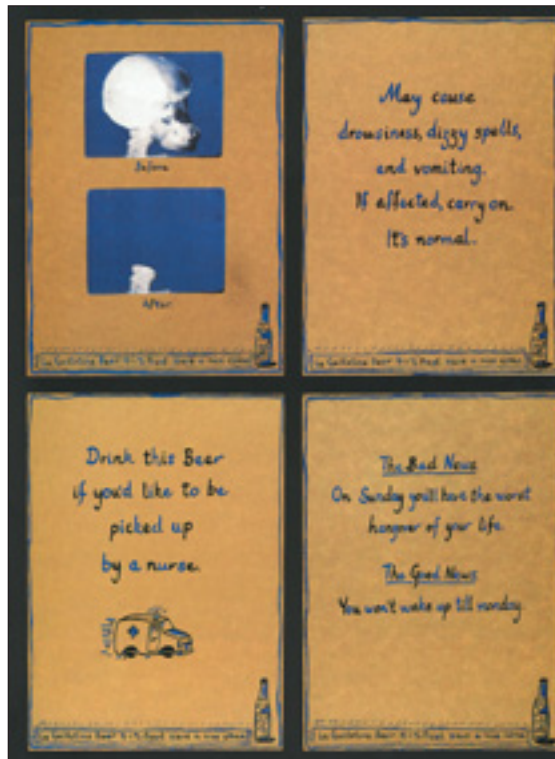 Before
After
May cause
drowsiness, dizzy spells,
and vomiting.
If affected, carry on.
It's normal.
Drink this Beer
if you'd like to be
picked up
by a nurse.
The Bad News
On Sunday you'll have the worst
hangover of your life.
The Good News
You won't wake up till monday.